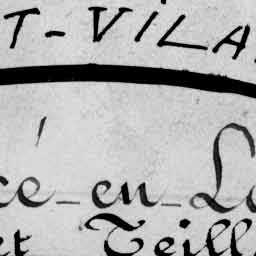 T-VILA
cé-en-Lo
et Teill